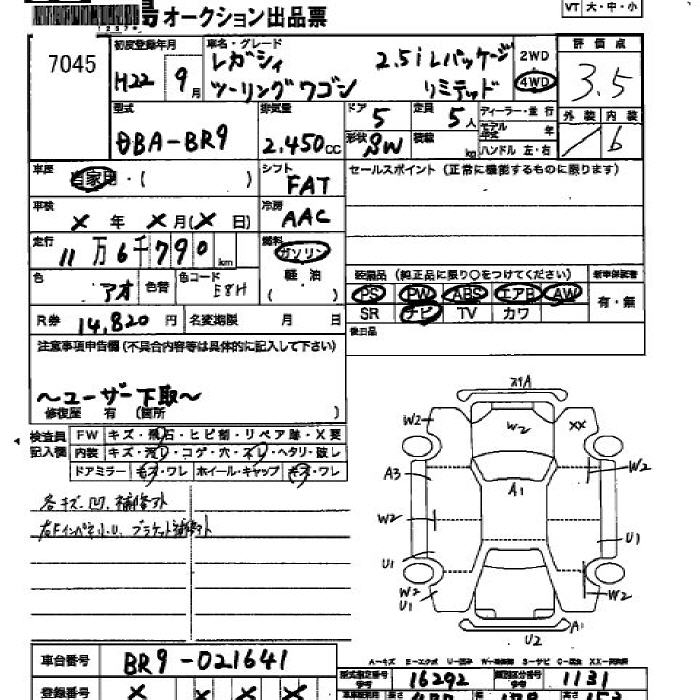 島オークション出品票
VT 大・中・小
7045
初度登録年月 車名・グレード 評価点
H22 9月 レガシィ 2.5iLパッケージ 2WD
ツーリングワゴン リミテッド 4WD 3.5
型式 排気量 ドア 定員 ディーラー・並行 外装 内装
DBA-BR9 2.450cc 5 5人 モデル年式 年
形状 SW 積載 kg ハンドル 左・右 6
車歴 自家用・( ) シフト FAT セールスポイント (正常に機能するものに限ります)
車検 × 年 × 月(× 日) 冷房 AAC
走行 11万6千790km 燃料 ガソリン
軽油
( )
装備品 (純正品に限り○をつけてください) 新車保証書
色 アオ 色替 色コード E8H PS PW ABS エアB AW 有・無
SR ナビ TV カワ
R券 14,820円 名変期限 月 日 後日品
注意事項申告欄(不具合内容等は具体的に記入して下さい)
~ユーザー下取~
修復歴 有 (箇所 )
検査員記入欄 FW キズ・飛石・ヒビ割・リペア跡・X要
内装 キズ・汚レ・コゲ・穴・スレ・ヘタリ・破レ
ドアミラー キズ・ワレ ホイール・キャップ キズ・ワレ
各キズ、凹、補修ホカ
スイA
W2 W2 XX
W2
A3 A1
W2
U1 U1
W2 W2
U1 A1
U2
A-キズ E-エクボ U-凹ミ W-補修跡 S-サビ C-腐食 XX-交換済
車台番号 BR9-021641 型式指定番号 参考 16292 類別区分番号 参考 1131
登録番号 × × × ×